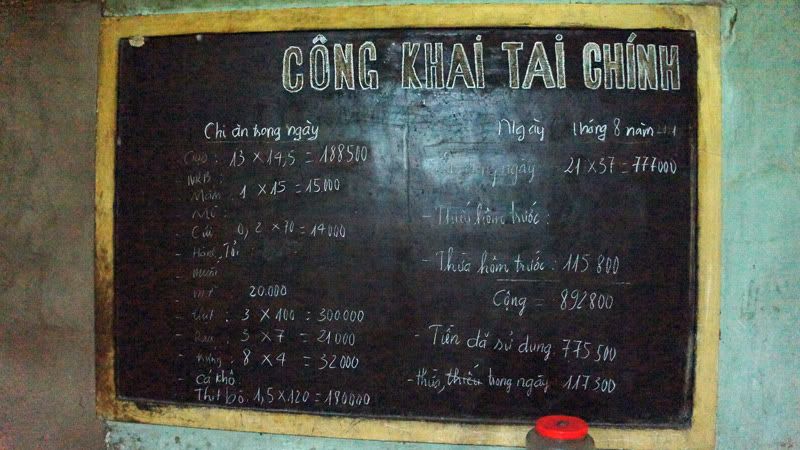 CÔNG KHAI TAI CHÍNH
Chi ăn trong ngày
Gạo : 13 × 14,5 = 188500
Mắm : 1 × 15 = 15000
- Củi 0,2 × 70 = 14000
- Hành, Tỏi
- muối
20.000
- Thịt : 3 × 100 = 300000
- Rau : 3 × 7 = 21000
- Trứng : 8 × 4 = 32000
- Cá khô
Thịt bò : 1,5 × 120 = 180000
Ngày tháng 8 năm
ngày 21 × 37 = 777000
- Thiếu hôm trước :
- Thừa hôm trước : 115 800
Cộng = 892800
- Tiền đã sử dụng 775 500
- thừa, thiếu trong ngày 117300